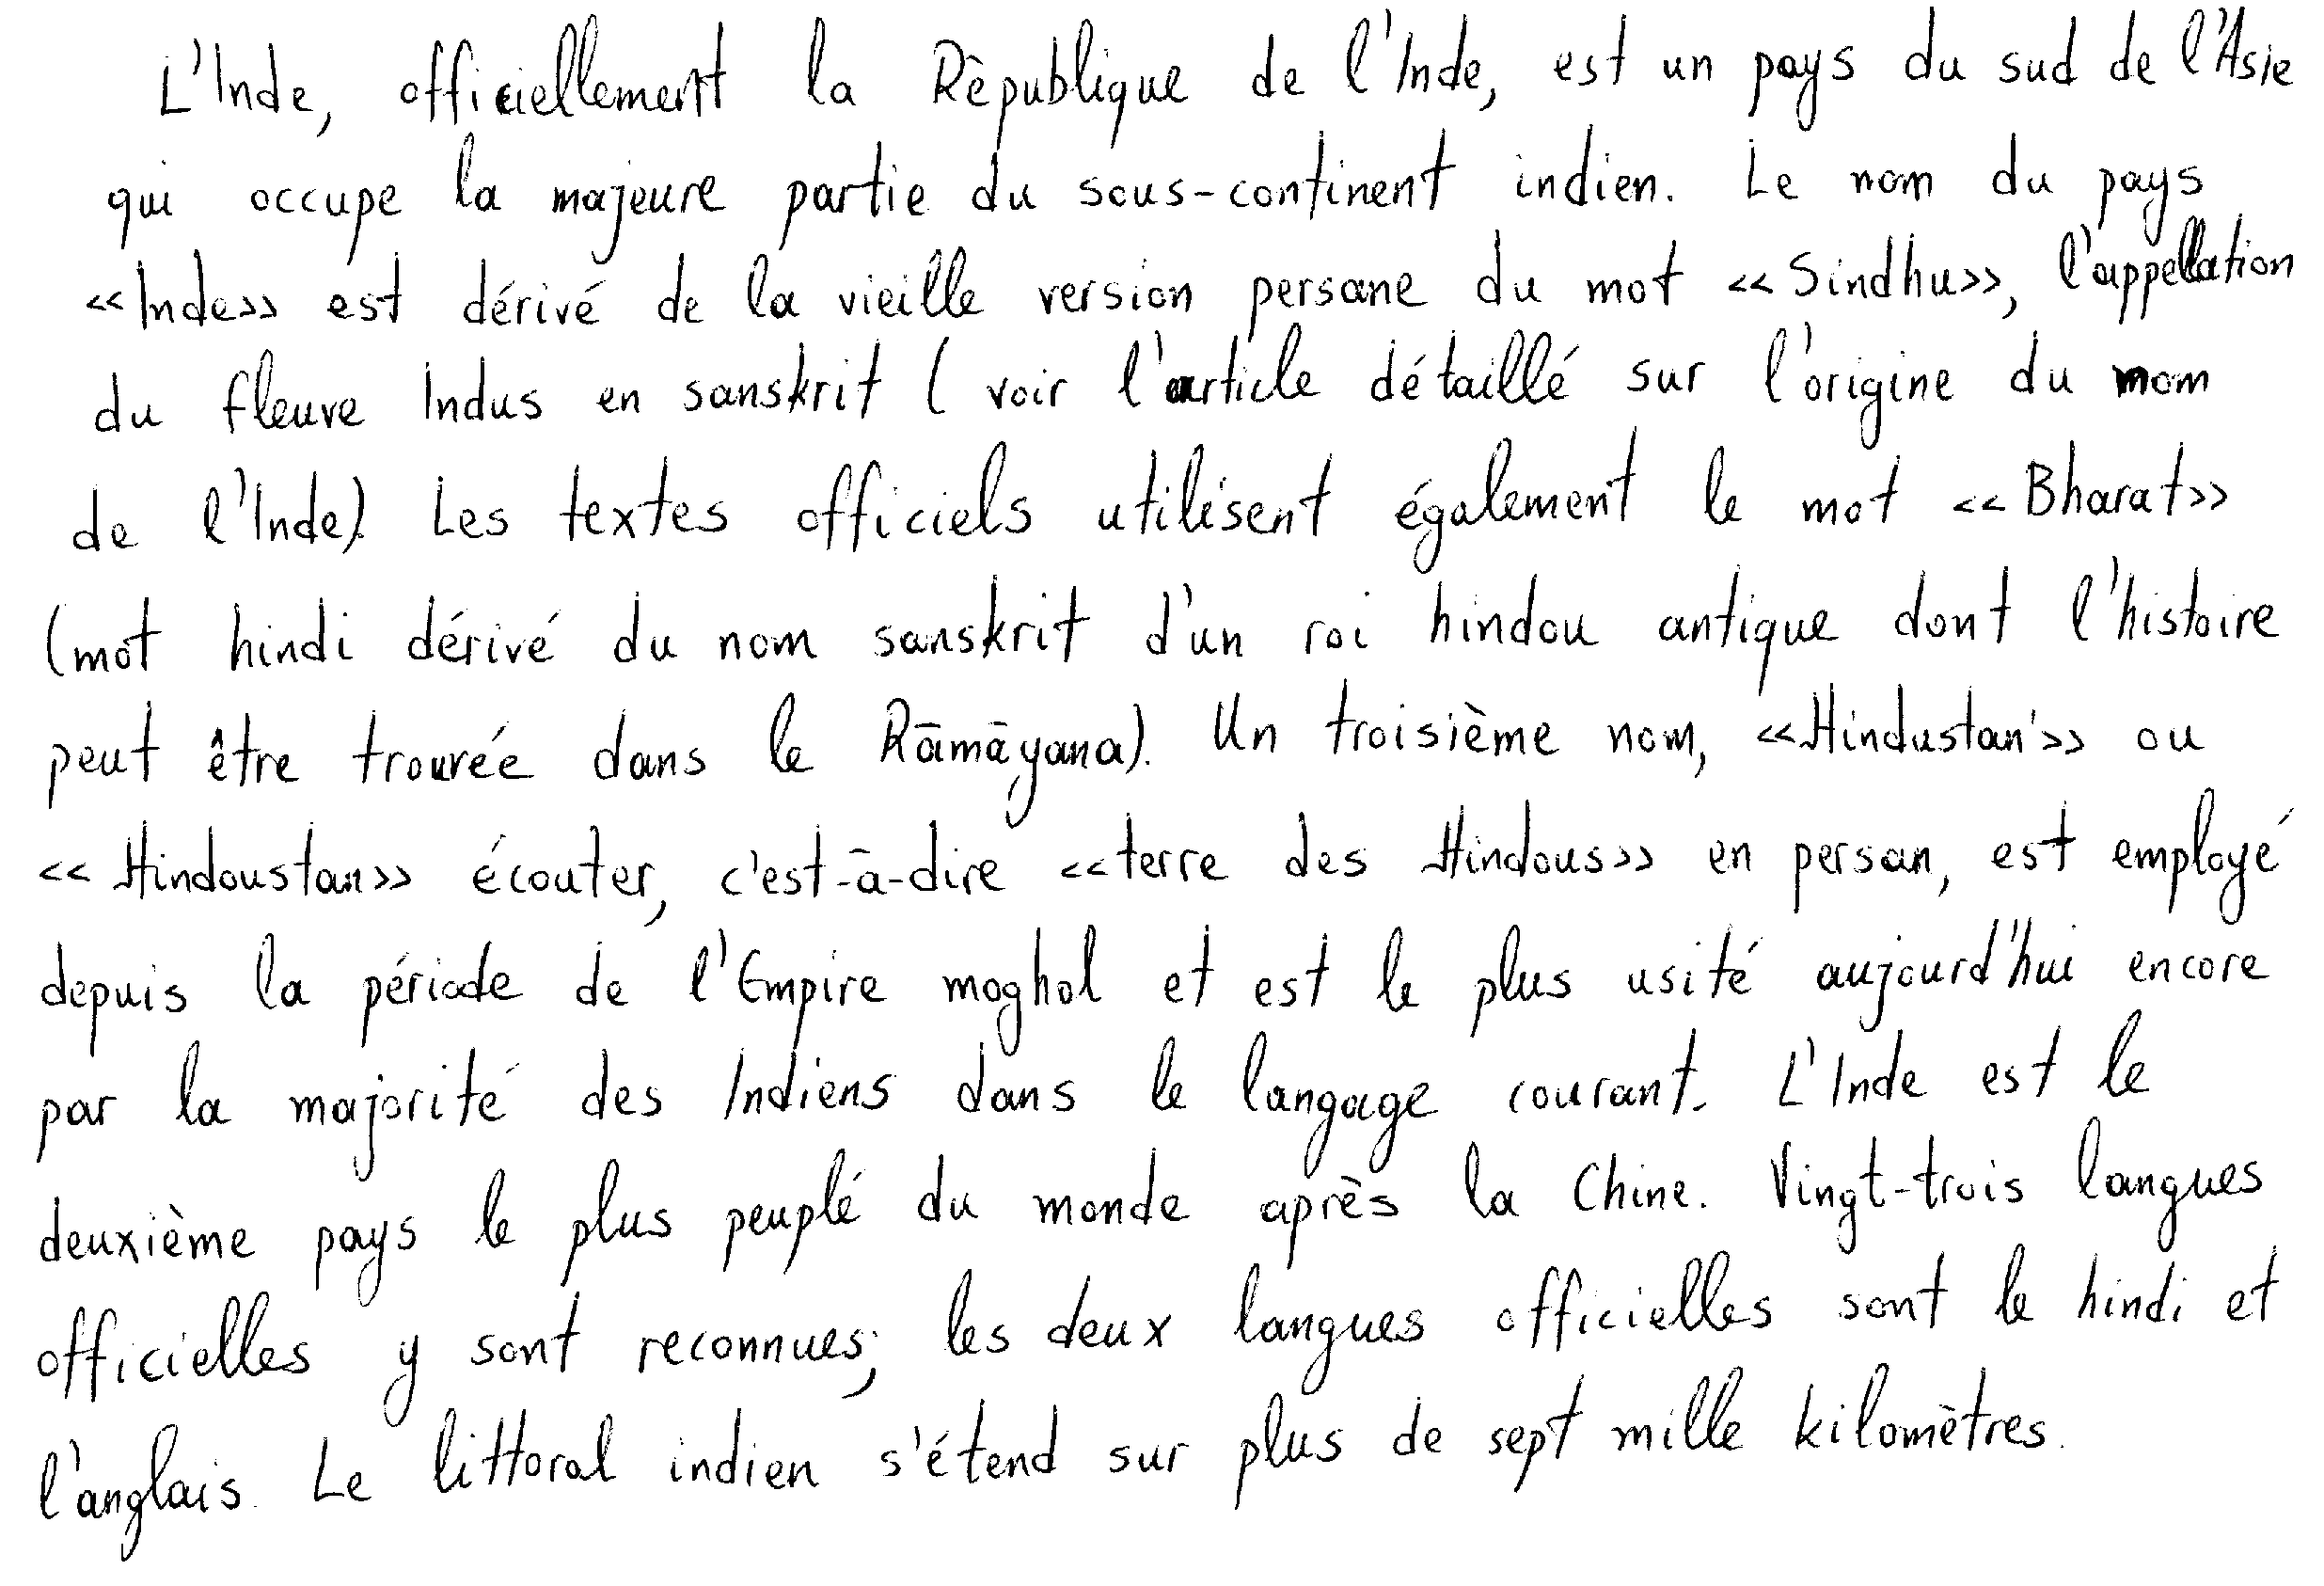 L'Inde, officiellement la Rèpublique de l'Inde, est un pays du sud de l'Asie
qui occupe la majeure partie du sous-continent indien. Le nom du pays
«Inde» est dérivé de la vieille version persane du mot «Sindhu», l'appellation
du fleuve Indus en sanskrit (voir l'article détaillé sur l'origine du nom
de l'Inde). Les textes officiels utilisent également le mot «Bharat»
(mot hindi dérivé du nom sanskrit d'un roi hindou antique dont l'histoire
peut être trouvée dans le Rāmāyana). Un troisième nom, «Hindustan'» ou
«Hindoustan» écouter, c'est-à-dire «terre des Hindous» en persan, est employé
depuis la période de l'Empire moghol et est le plus usité aujourd'hui encore
par la majorité des Indiens dans le langage courant. L'Inde est le
deuxième pays le plus peuplé du monde après la Chine. Vingt-trois langues
officielles y sont reconnues; les deux langues officielles sont le hindi et
l'anglais. Le littoral indien s'étend sur plus de sept mille kilomètres.